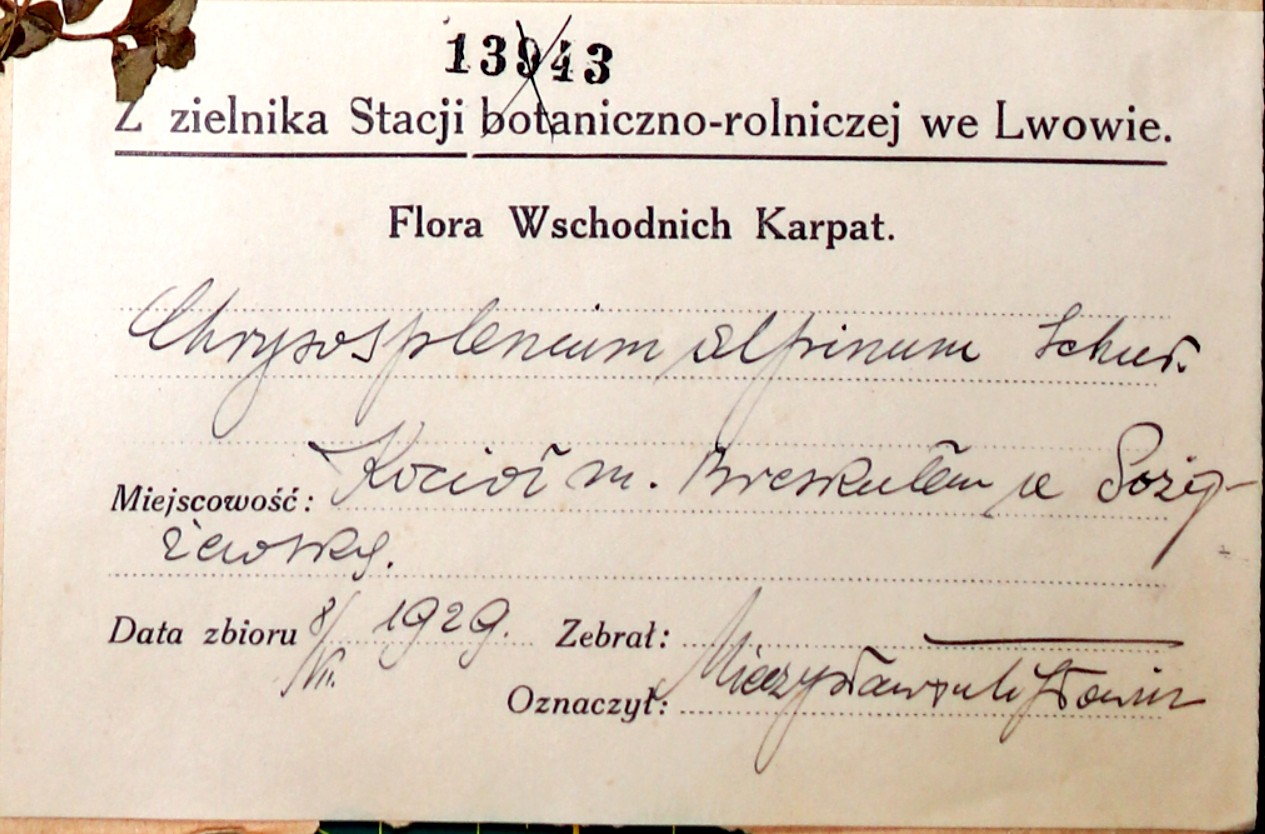 13943
Z zielnika Stacji botaniczno-rolniczej we Lwowie.
Flora Wschodnich Karpat.
Chrysosplenium alpinum Schur.
Miejscowość: Kocioł m. Breskulem a Pożyżewską.
Data zbioru 8/VII. 1929. Zebrał:
Oznaczył: Mieczysław